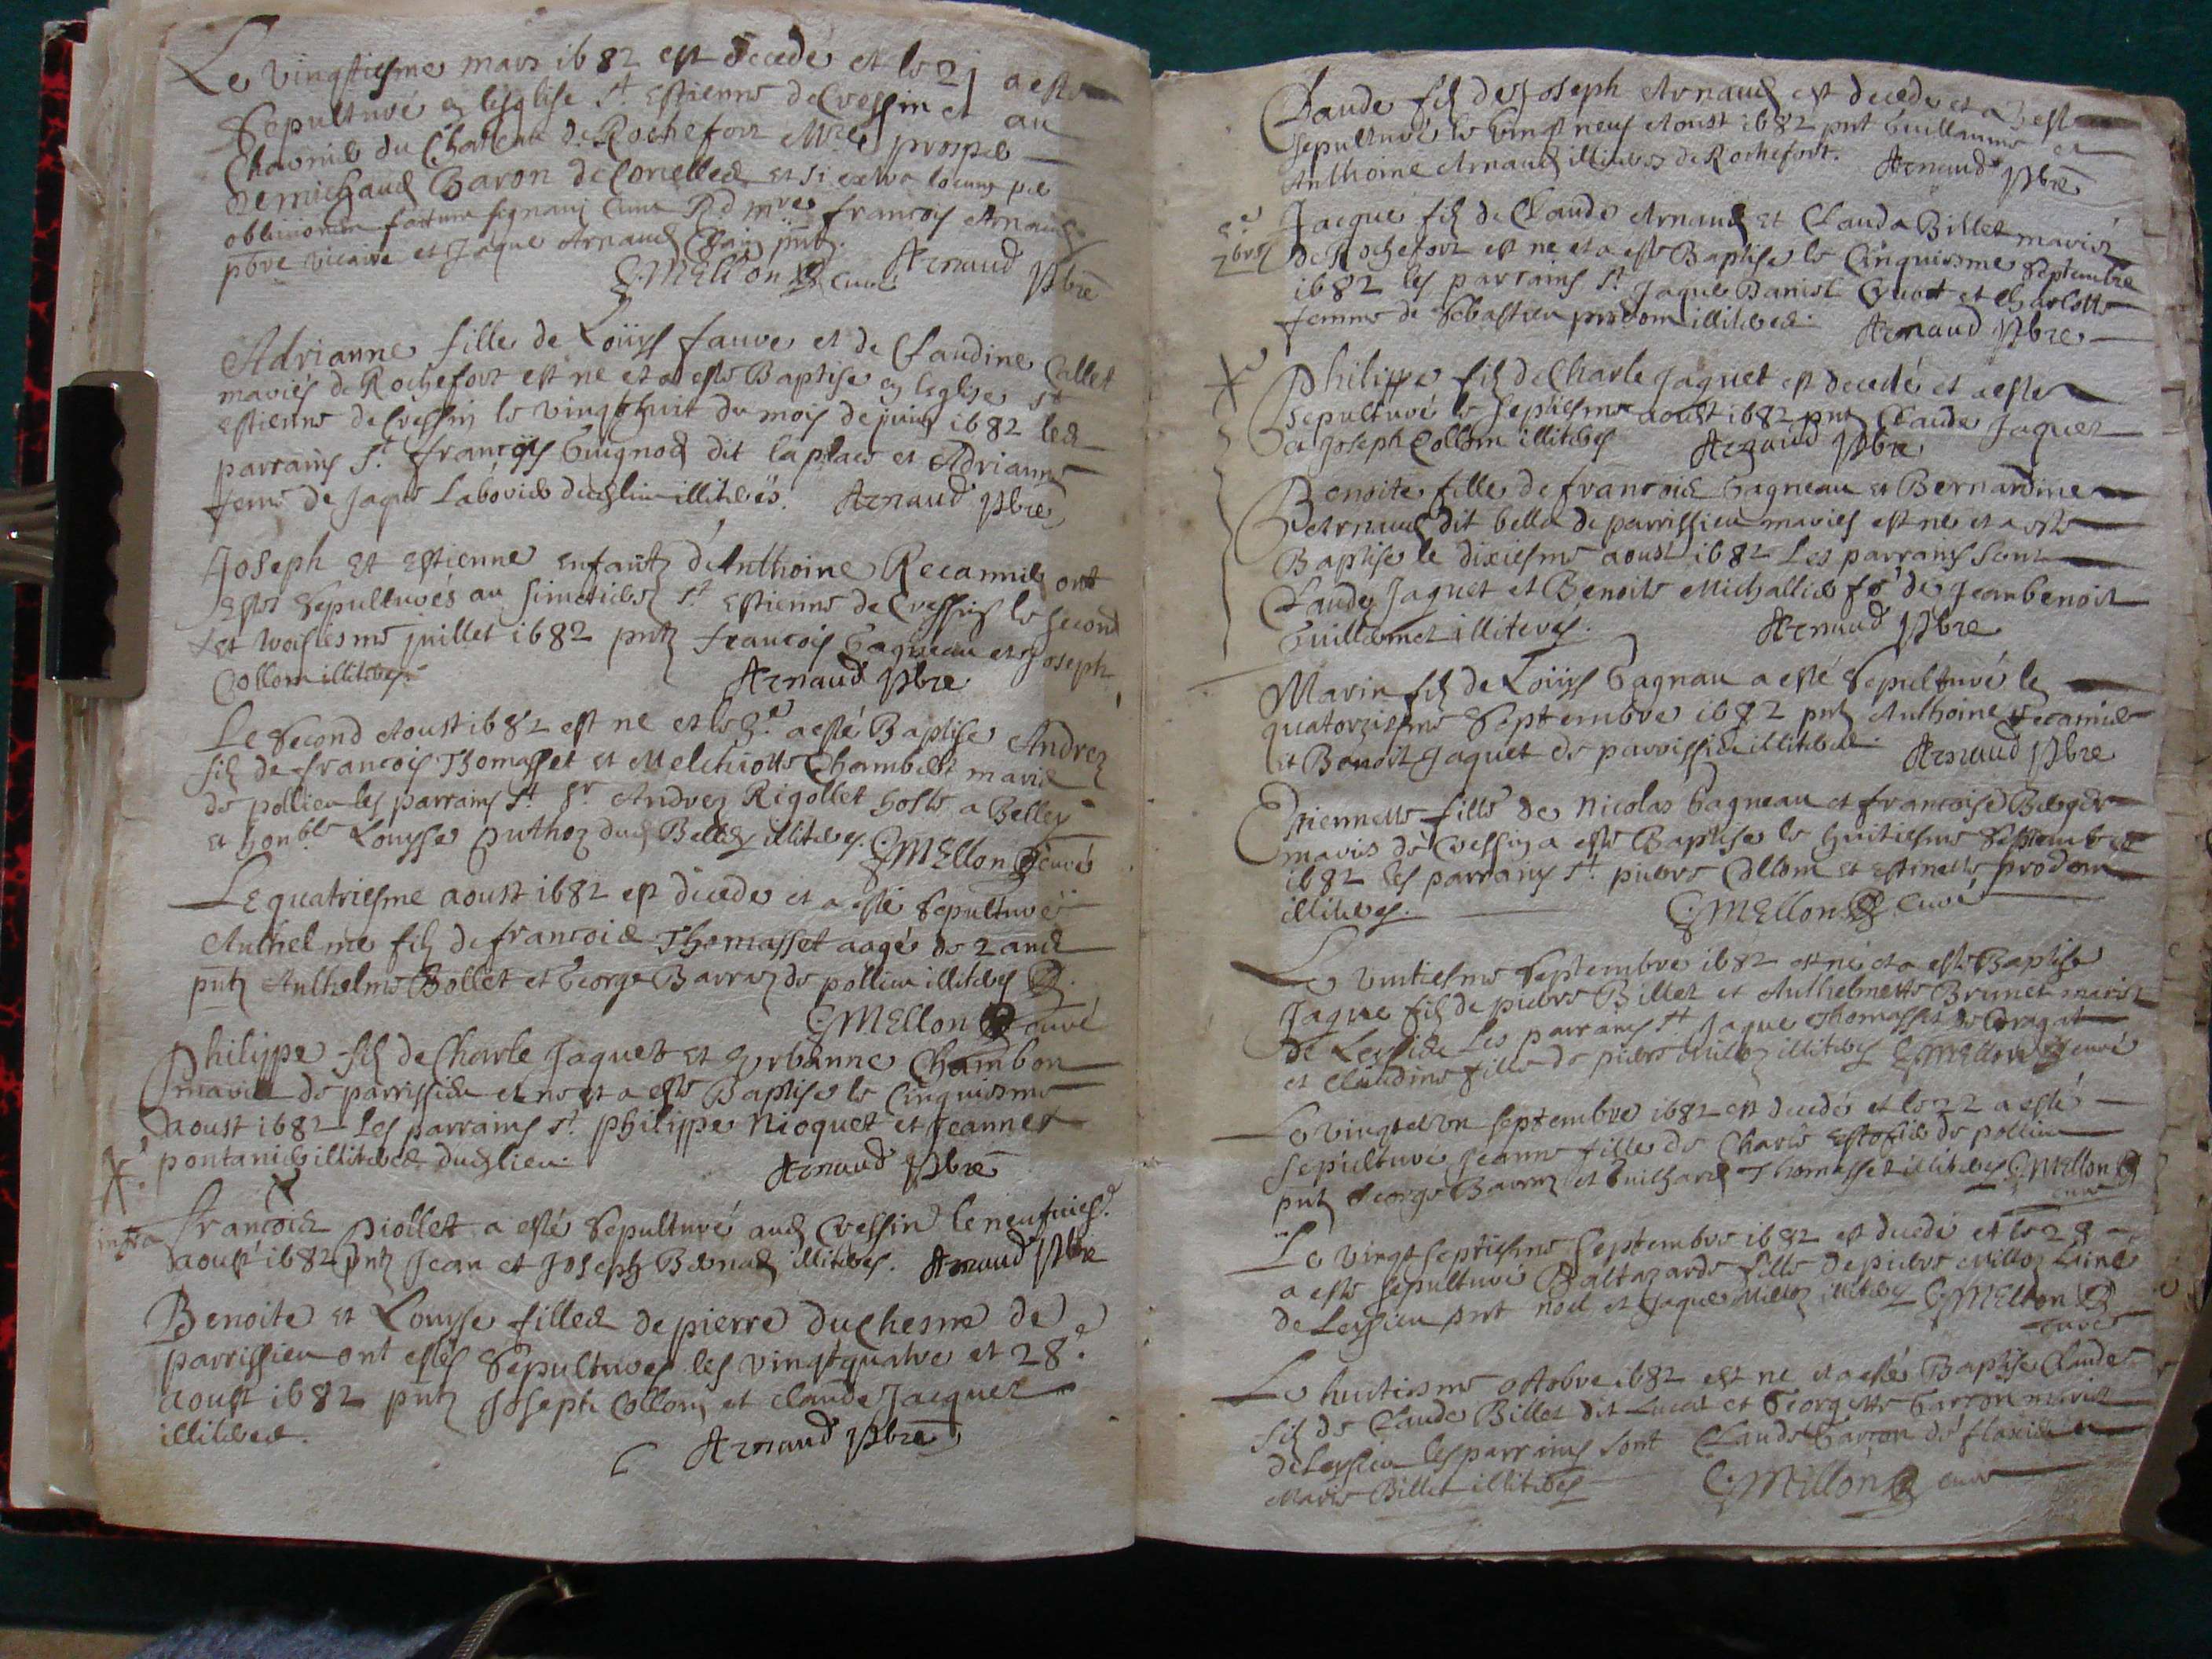 Le vingtiesme mars 1682 est decede et le 21 a esté
sepulturé en lesglise St Estienne de Cressin et au
du Chateau de Rochefort Mre prosper
Demichaud Baron de Corcelles et si extra locum per
oblivionem factum signavi cum Rd mre francois Arnaud
pbre vicaire et Jaque Arnaud pntz.
C. MEllon curé Arnaud pbre
Adrianne fille de Loüys faure et de Claudine Callet
mariés de Rochefort est ne et a esté Baptise en leglise St
Estienne de Cressin le vingthuit du mois de juin 1682 les
parrains St francois Guignod dit laplace et Adrianne
feme de Jaque Laborier dudlieu illiterés. Arnaud pbre
Joseph et Estienne enfantz d'Anthoine Recamier ont
estés sepulturés au simetiere St Estienne de Cressin le second
et troisiesme juillet 1682 pntz francois Gagneau et Joseph
Collom illiteres Arnaud pbre
Le second Aoust 1682 est ne et le 3e a esté Baptise Andrez
filz de francois Thomasset et Melchiotte Chambert maries
de pollieu les parrains St Sr Andrez Rigollet hoste a Belley
et honble Louyse Puthoz dud Belley illiteres. C. MEllon curé
Le quatriesme aoust 1682 est decede et a esté sepulturé
Anthelme filz de francois Thomasset aagé de 2 ans
pntz Anthelme Bollet et George Barraz de pollieu illiteres
C. MEllon curé
Philippe filz de Charle Jaquet et Urbanne Chambon
maries de parrissieu et ne et a esté Baptise le Cinquiesme
aoust 1682 les parrains St Philippe Nioquet et Jeannet
pontanier illiteres dudlieu. Arnaud pbre
infra
francois piollet a esté sepulturé aud Cressin le neufvies.e
aoust 1682 pntz Jean et Joseph Bernad illiteres. Arnaud pbre
Benoite et Louyse filles de pierre duchesne de
parrissieu ont estés sepultures les vingtquatre et 28.e
aoust 1682 pntz Joseph Collom et Claude Jacquet
illiteres. Arnaud pbre
Claude filz de Joseph Arnaud est decede et a esté
sepulturé le vingt neuf Aoust 1682 pnt Guillaume et
Anthoine Arnaud illiteres de Rochefort. Arnaud pbre
Jacque filz de Claude Arnaud et Clauda Billet mariés
7bre
de Rochefort est ne et a esté Baptise le Cinquiesme septembre
1682 les parrains St Jaque Daniel et Charlotte
femme de Sebastien prodom illiteres. Arnaud pbre
Philippe filz de Charle Jaquet est decedé et a esté
sepulturé le septiesme aoust 1682 pntz Claude Jaquet
et Joseph Collom illiteres Arnaud pbre
Benoite fille de francois Gagneau et Bernardine
Arnaud dit bella de parrissieu maries est ne et a esté
Baptise le dixiesme aoust 1682 Les parrains sont
Claude Jaquet et Benoite Michallier fe de Jean benoit
Guillermet illiteres. Arnaud pbre
Marin filz de Loüys Gagnau a esté sepulturé le
quatorziesme septembre 1682 pntz Anthoine Recamier
et Benoit Jaquet de parrissieu illiteres. Arnaud pbre
Etiennette fille de Nicolas Gagneau et francoise Berger
mariés de Cressin a esté Baptise le huitiesme septembre
1682 les parrains St pierre Collom et Estiennette prodom
illiteres. C. MEllon curé
Le septembre 1682 est né et a esté Baptise
Jaque filz de pierre Billet et Anthelmette Brunet mariés
de Leyssieu Les parrains St Jaque Thomasset de
et Claudine fille de pierre Milloz illiteres C. MEllon curé
Le vingt et un septembre 1682 est decedé et le 22 a esté
sepulturé Jeanne fille de Charle de pollieu
pntz George Barraz et Guichard Thomasset illiteres C. MEllon
curé
Le vingt septiesme septembre 1682 est decedé et le 28
a esté sepulturé Baltazarde fille de pierre Milloz Lainé
de Leyssieu pnt noel et Jaque Milloz illiteres C. MEllon
curé
Le huitiesme octobre 1682 est ne et a esté Baptise Claude
filz de Claude Billet dit Lucat et Georgette Garron mariés
de Leyssieu les parrains sont Claude Garron de flaxieu et
Marie Billet illiteres C. MEllon curé